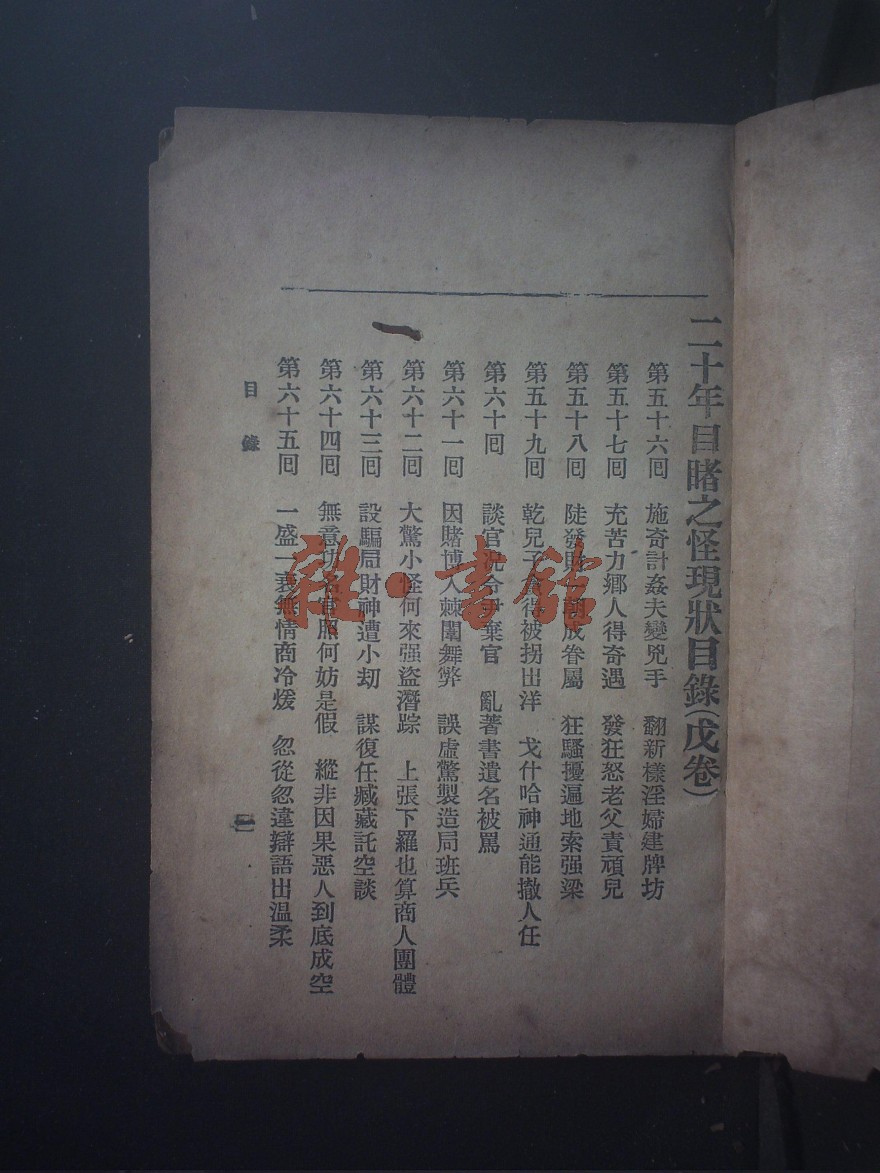 二十年目睹之怪現狀目錄(戊卷)
第五十六囘 施奇計姦夫變兇手 翻新樣淫婦建牌坊
第五十七囘 充苦力鄉人得奇遇 發狂怒老父責頑兒
第五十八囘 陡發財 成眷屬 狂騷擾遍地索强梁
第五十九囘 乾兒子 得被拐出洋 戈什哈神通能撤人任
第六十囘 談官況令尹棄官 亂著書遺名被罵
第六十一囘 因賭博入棘闈舞弊 誤虛驚製造局班兵
第六十二囘 大驚小怪何來强盜潛踪 上張下羅也算商人團體
第六十三囘 設騙局財神遭小刧 謀復任臧藏託空談
第六十四囘 無意功名官照何妨是假 縱非因果惡人到底成空
第六十五囘 一盛一衰無情商冷煖 忽從忽違辯語出温柔
目錄
一
雜·書館